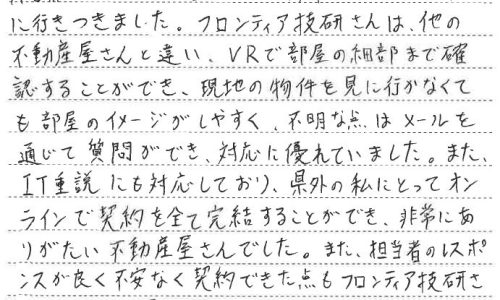 に行きつきました。フロンティア技研さんは、他の
不動産屋さんと違い、VRで部屋の細部まで確
認することができ、現地の物件を見に行かなくて
も部屋のイメージがしやすく、不明な点はメールを
通じて質問ができ、対応に優れていました。また、
IT重説にも対応しており、県外の私にとってオン
ラインで契約を全て完結することができ、非常にあ
りがたい不動産屋さんでした。また、担当者のレスポ
ンスが良く不安なく契約できた点もフロンティア技研さ